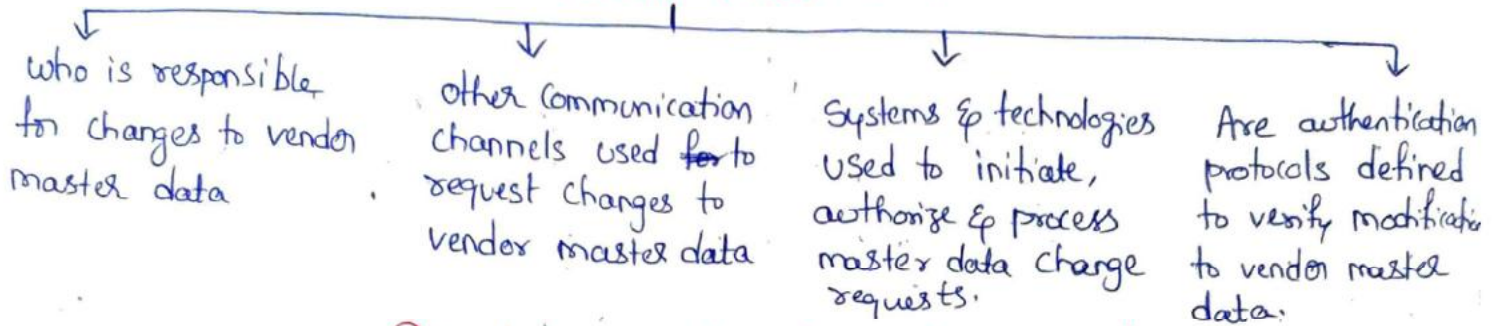 who is responsible
for changes to vendor
master data
other communication
channels used for to
request changes to
vendor master data
Systems & technologies
used to initiate,
authorize & process
master data change
requests.
Are authentication
protocols defined
to verify modification
to vendor master
data.